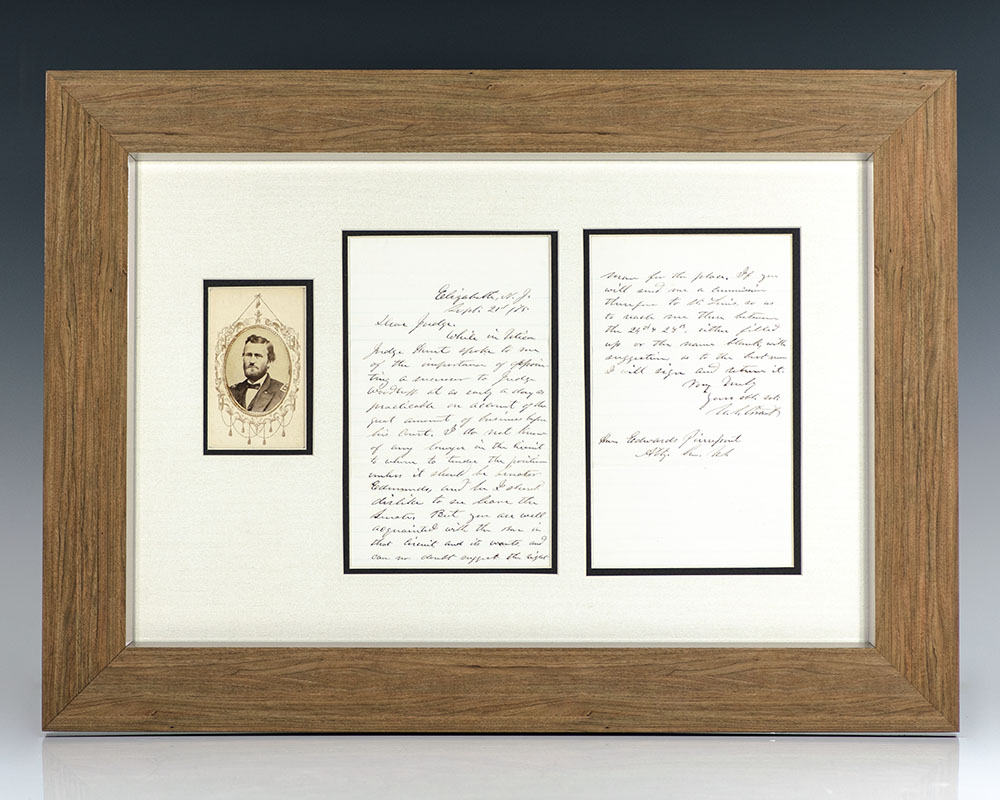 Elizabeth, N. J.
Sept. 21st /75
Dear Judge.
While in Utica
Judge Hunt spoke to me
of the importance of appoin
ting a successor to Judge
Woodruff at as early a day as
practicable on account of the
great amount of business before
his Court. I do not know
of any lawyer in the Circuit
to whom to tender the position
unless it should be Senator
Edmunds, and he I should
dislike to see leave the
Senate. But you are well
acquainted with the men in
that Circuit and its wants and
can no doubt suggest the right
man for the place. If you
will send me a Commission
therefor to St. Louis so as
to reach me there between
the 24th & 28th either filled
up or the name blank with
suggestion as to the best man
I will sign and return it.
Very Truly
Yours
U. S. Grant
Hon. Edwards Pierrepont
Atty. Gen.